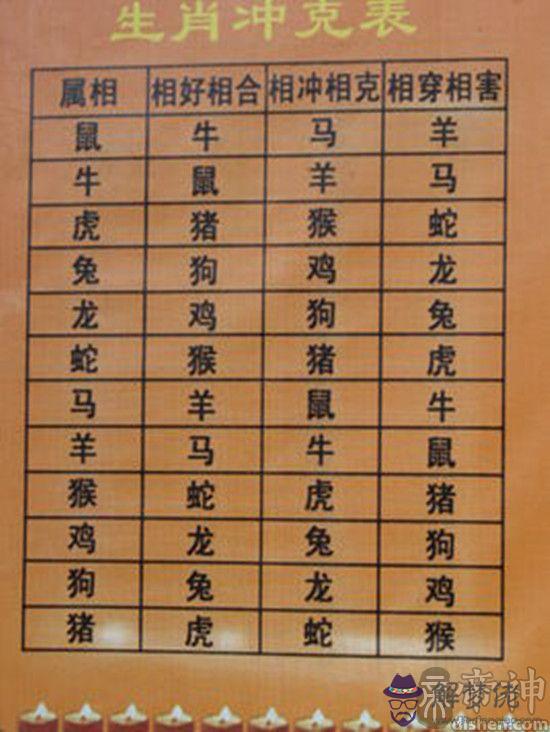 生肖冲克表
属相 相好相合 相冲相克 相穿相害
鼠 牛 马 羊
牛 鼠 羊 马
虎 猪 猴 蛇
兔 狗 鸡 龙
龙 鸡 狗 兔
蛇 猴 猪 虎
马 羊 鼠 牛
羊 马 牛 鼠
猴 蛇 虎 猪
鸡 龙 兔 狗
狗 兔 龙 鸡
猪 虎 蛇 猴
解梦佬